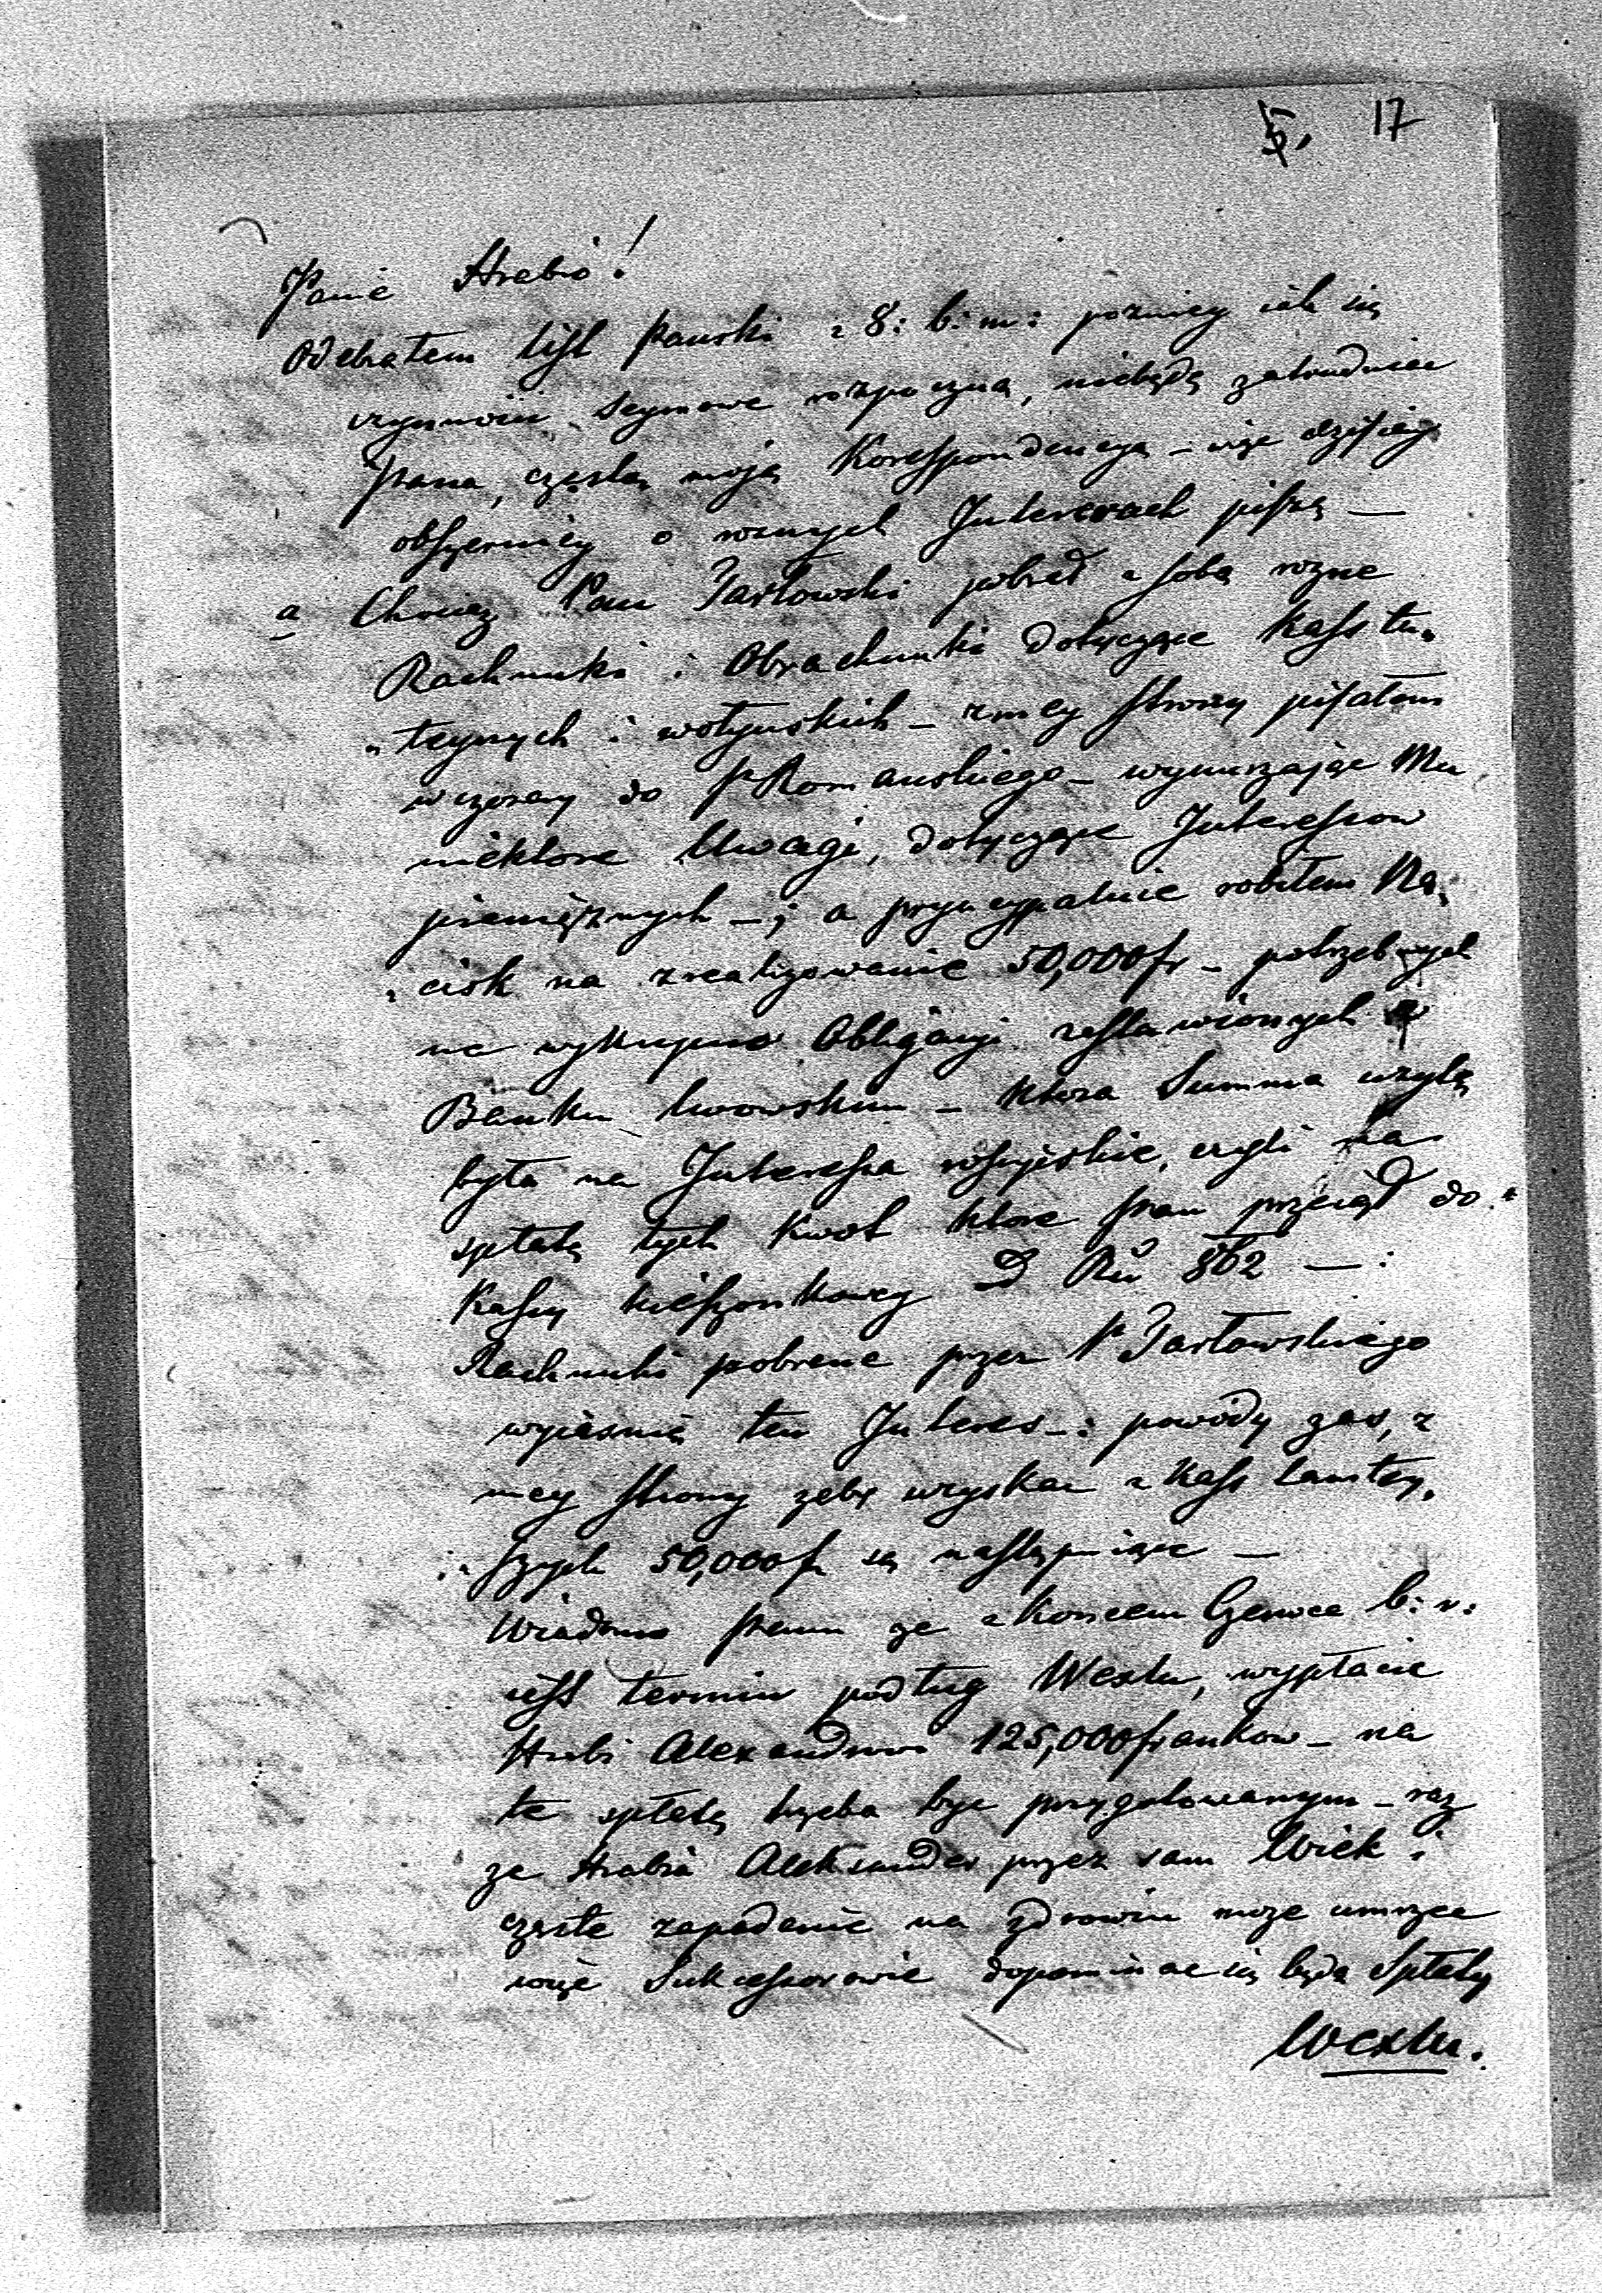 5, 17
Panie Hrabio!
Odebrałem list Pański z 8: b: m: pozniey iak się
czynności Seymowe rozpoczną, niebędę zatrudniać
Pana, częstą moją Korespondencyą – więc dzisiay
obszerniey o roznych Interesach piszę —
a Chociaz Pan Jarłowski pobrał z sobą rozne
Rachunki i Obrachunki dotyczące Kass tu„
„teyszych i wołynskich – z mey strony pisałem
wczoray do P Romanskiego – wynurzając Mu
niektore Uwagi, dotyczące Interessow
pienięznych –; a pryncypalnie robiłem Na„
„cisk na zrealizowanie 50,000fr – potrzebnych
na wykupno Obligacyi zastawionych w
Banku Lwowskim – ktora Summa uzytą
była na Interessa rossyiskie, czyli na
spłatę tych Kwot ktore Pan przeiął do
Kassy kieszonkowey D Ru 862 — :
Rachunki pobrane przez P Jarłowskiego
wyiasnią ten Interes – : powody zas, z
mey strony zeby uzyskac z Kass tamtey„
„szych 50,000fr są następuiące —
Wiadomo Panu ze z Koncem Czerwca b: r:
iest termin podług Wexlu, wypłacic
Hrabi Alexandrowi 125,000frankow – na
te spłatę trzeba byc przygotowanym – raz
ze Hrabia Aleksander przez sam Wiek i
częste zapadanie na zdrowiu moze umrzec
więc Sukcessorowie dopominac się będą Spłaty
Wexlu.